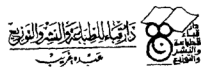 دار قباء للطباعة والنشر والتوزيع
عبده غريب
دار
قباء
للطباعة
والنشر
والتوزيع